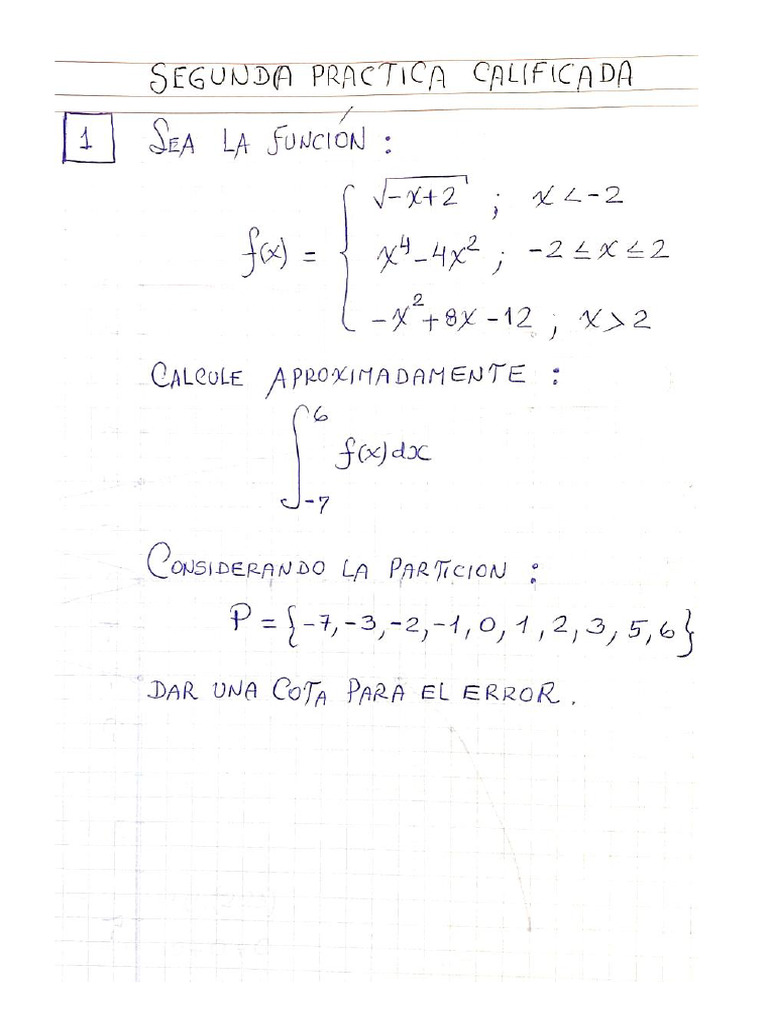 SEGUNDA PRACTICA CALIFICADA
1 SEA LA FUNCIÓN :
f(x) = { √-x+2 ; x < -2
x⁴-4x² ; -2 ≤ x ≤ 2
-x²+8x-12 ; x > 2
CALCULE APROXIMADAMENTE :
∫₋₇⁶ f(x)dx
CONSIDERANDO LA PARTICION :
P = {-7,-3,-2,-1,0,1,2,3,5,6}
DAR UNA COTA PARA EL ERROR.